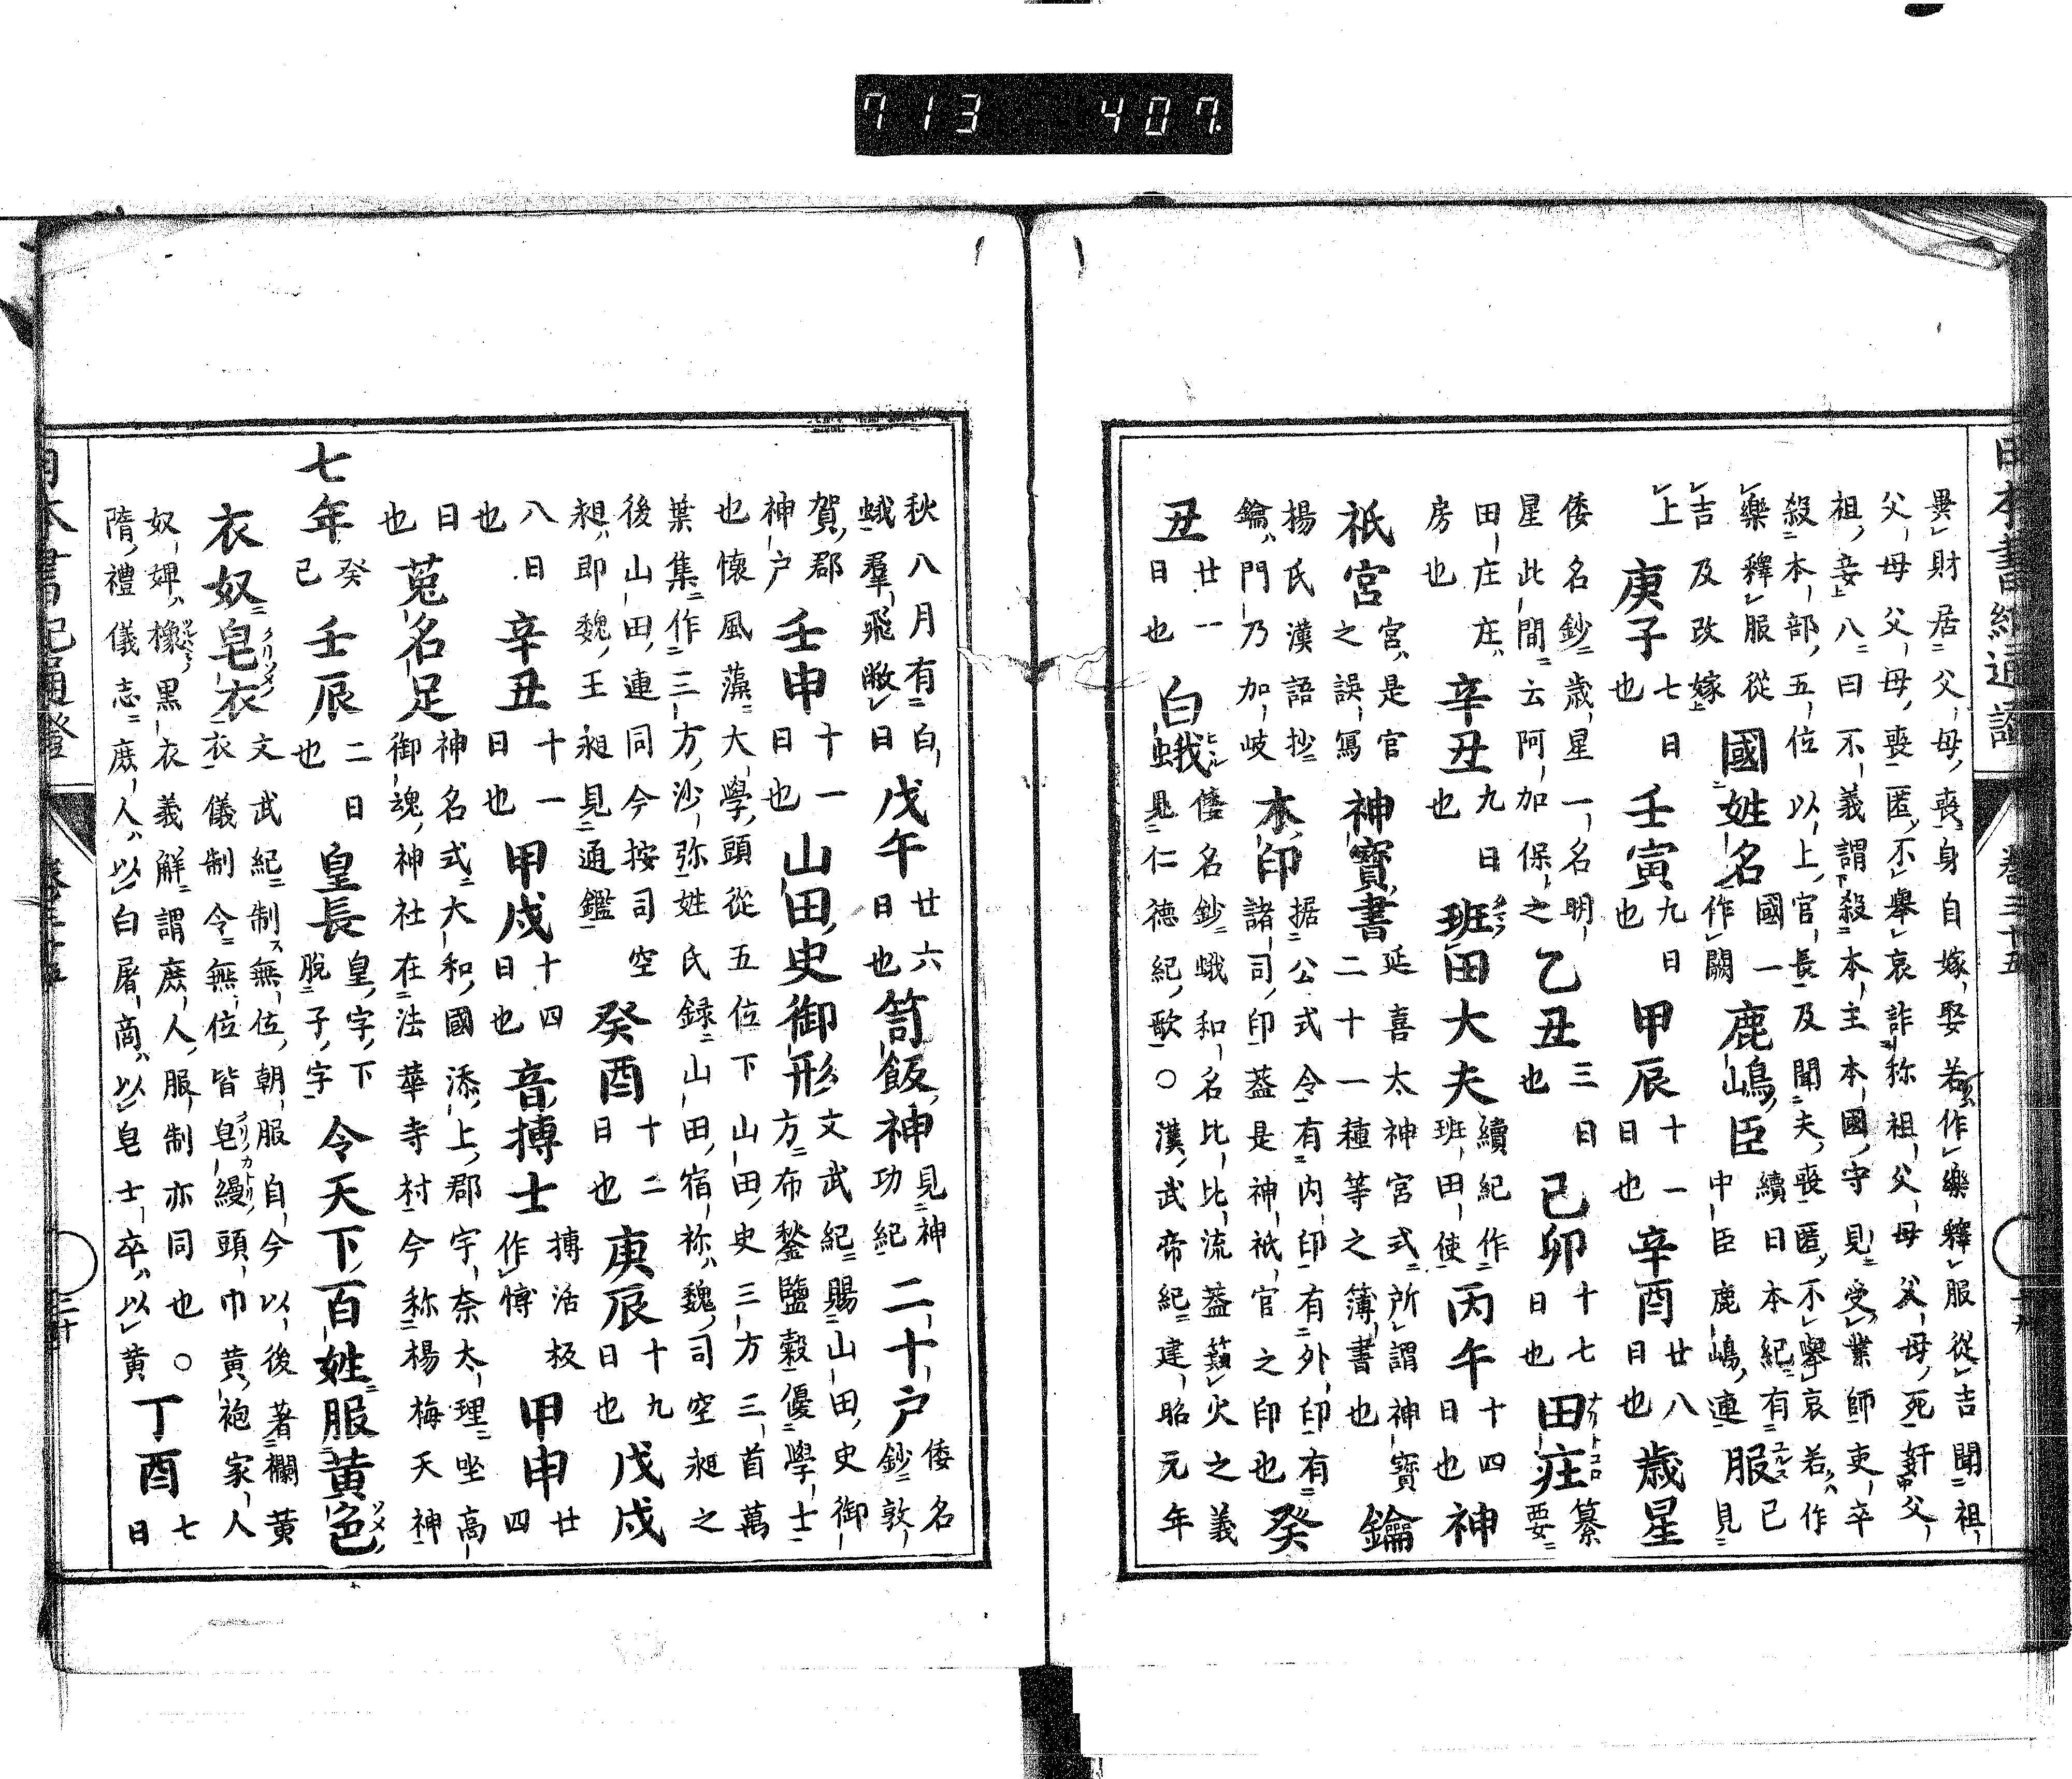 713 407.
日本書紀通證
卷三十五
畢財居父母喪身自嫁娶若作樂釋服從吉聞祖
父母父母喪匿不舉哀詐称祖父母父母死奸父
祖妾八曰不義謂殺本主本國守見受業師吏卒
殺本部五位以上官長及聞夫喪匿不舉哀若作
樂釋服從
國姓名
國一
作闕
鹿嶋臣
續日本紀有
中臣鹿嶋連
服
已
見
吉及改嫁
上
庚子
七日
也
壬寅
九日
也
甲辰
十一
日也
辛酉
廿八
日也
歲星
倭名鈔歲星一名明
星此間云阿加保之
乙丑
三日
也
己卯
十七
日也
田莊
纂
要
田庄庄
房也
辛丑
九日
也
班田大夫
續紀作
班田使
丙午
十四
日也
神
祇宮
宮是官
之誤寫
神寶書
延喜太神宮式所謂神寶
二十一種等之簿書也
鑰
揚氏漢語抄
鑰門乃加岐
本印
据公式令有内印有外印有
諸司印葢是神祇官之印也
癸
丑
廿一
日也
白蛾
倭名鈔蛾和名比比流葢蘱火之義
見仁德紀歌〇漢武帝紀建昭元年
秋八月有白
蛾羣飛蔽日
戊午
廿六
日也
笥飯神
見神
功紀
二十戶
倭名
鈔敦
賀郡
神戶
壬申
十一
日也
山田史御形
文武紀賜山田史御
方布鍫鹽穀優學士
也懷風藻大學頭從五位下山田史三方三首萬
葉集作三方沙弥姓氏録山田宿祢魏司空昶之
後山田連同今按司空
昶即魏王昶見通鑑
癸酉
十二
日也
庚辰
十九
日也
戊戌
八日
也
辛丑
十一
日也
甲戌
十四
日也
音搏士
搏活板
作愽
甲申
廿四
日
也
菟名足
神名式大和國添上郡宇奈太理坐高
御魂神社在法華寺村今称楊梅天神
七年
癸
己
壬辰
二日
也
皇長
皇字下
脫子字
令天下百姓服黃色
衣奴皂衣
文武紀制無位朝服自今以後著襴黃
衣儀制令無位皆皂縵頭巾黃袍家人
奴婢橡黒衣義解謂庶人服制亦同也〇
隋禮儀志庶人以白屠商以皂士卒以黃
丁酉
七
日
日本書紀通證
三十